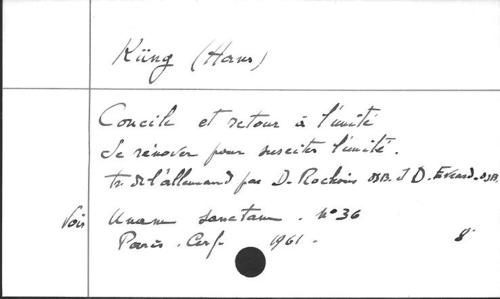 Küng (Hans)
Concile et retour à l'unité
Se rénover pour susciter l'unité.
tr. de l'allemand par D. Rochais OSB. J D. Evrard. OSB.
Voir Unam sanctam. n° 36
Paris. Cerf. 1961. 8°